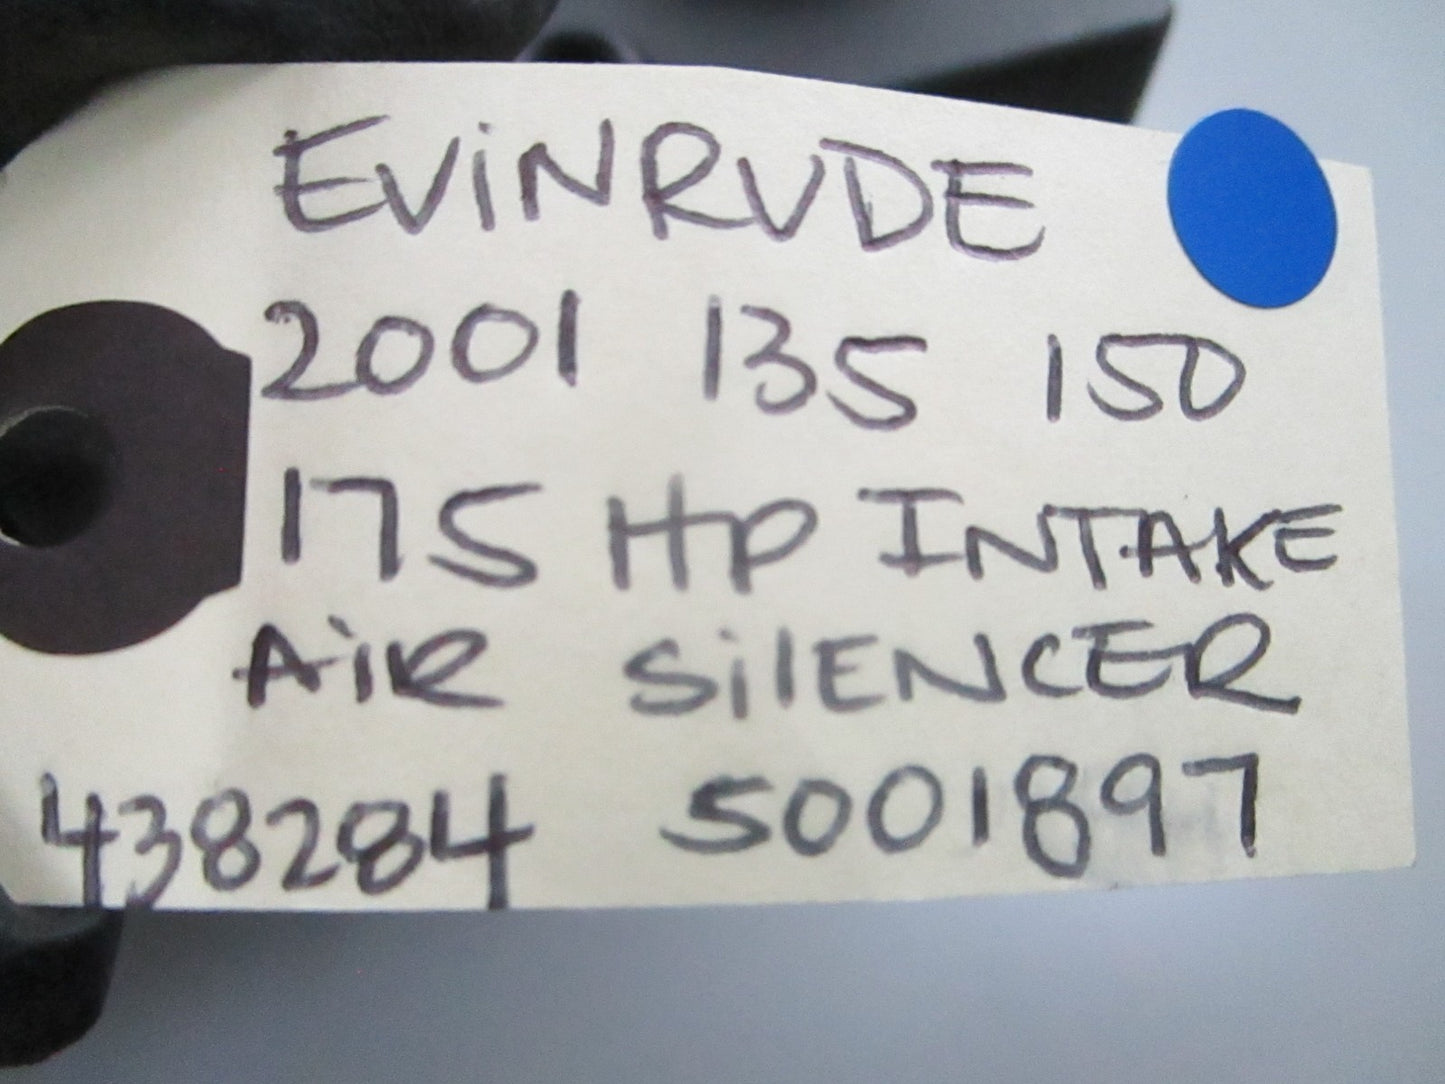 EViNRUDE
2001 135 150
175 HP INTAKE
AiR SilENCER
438284 5001897